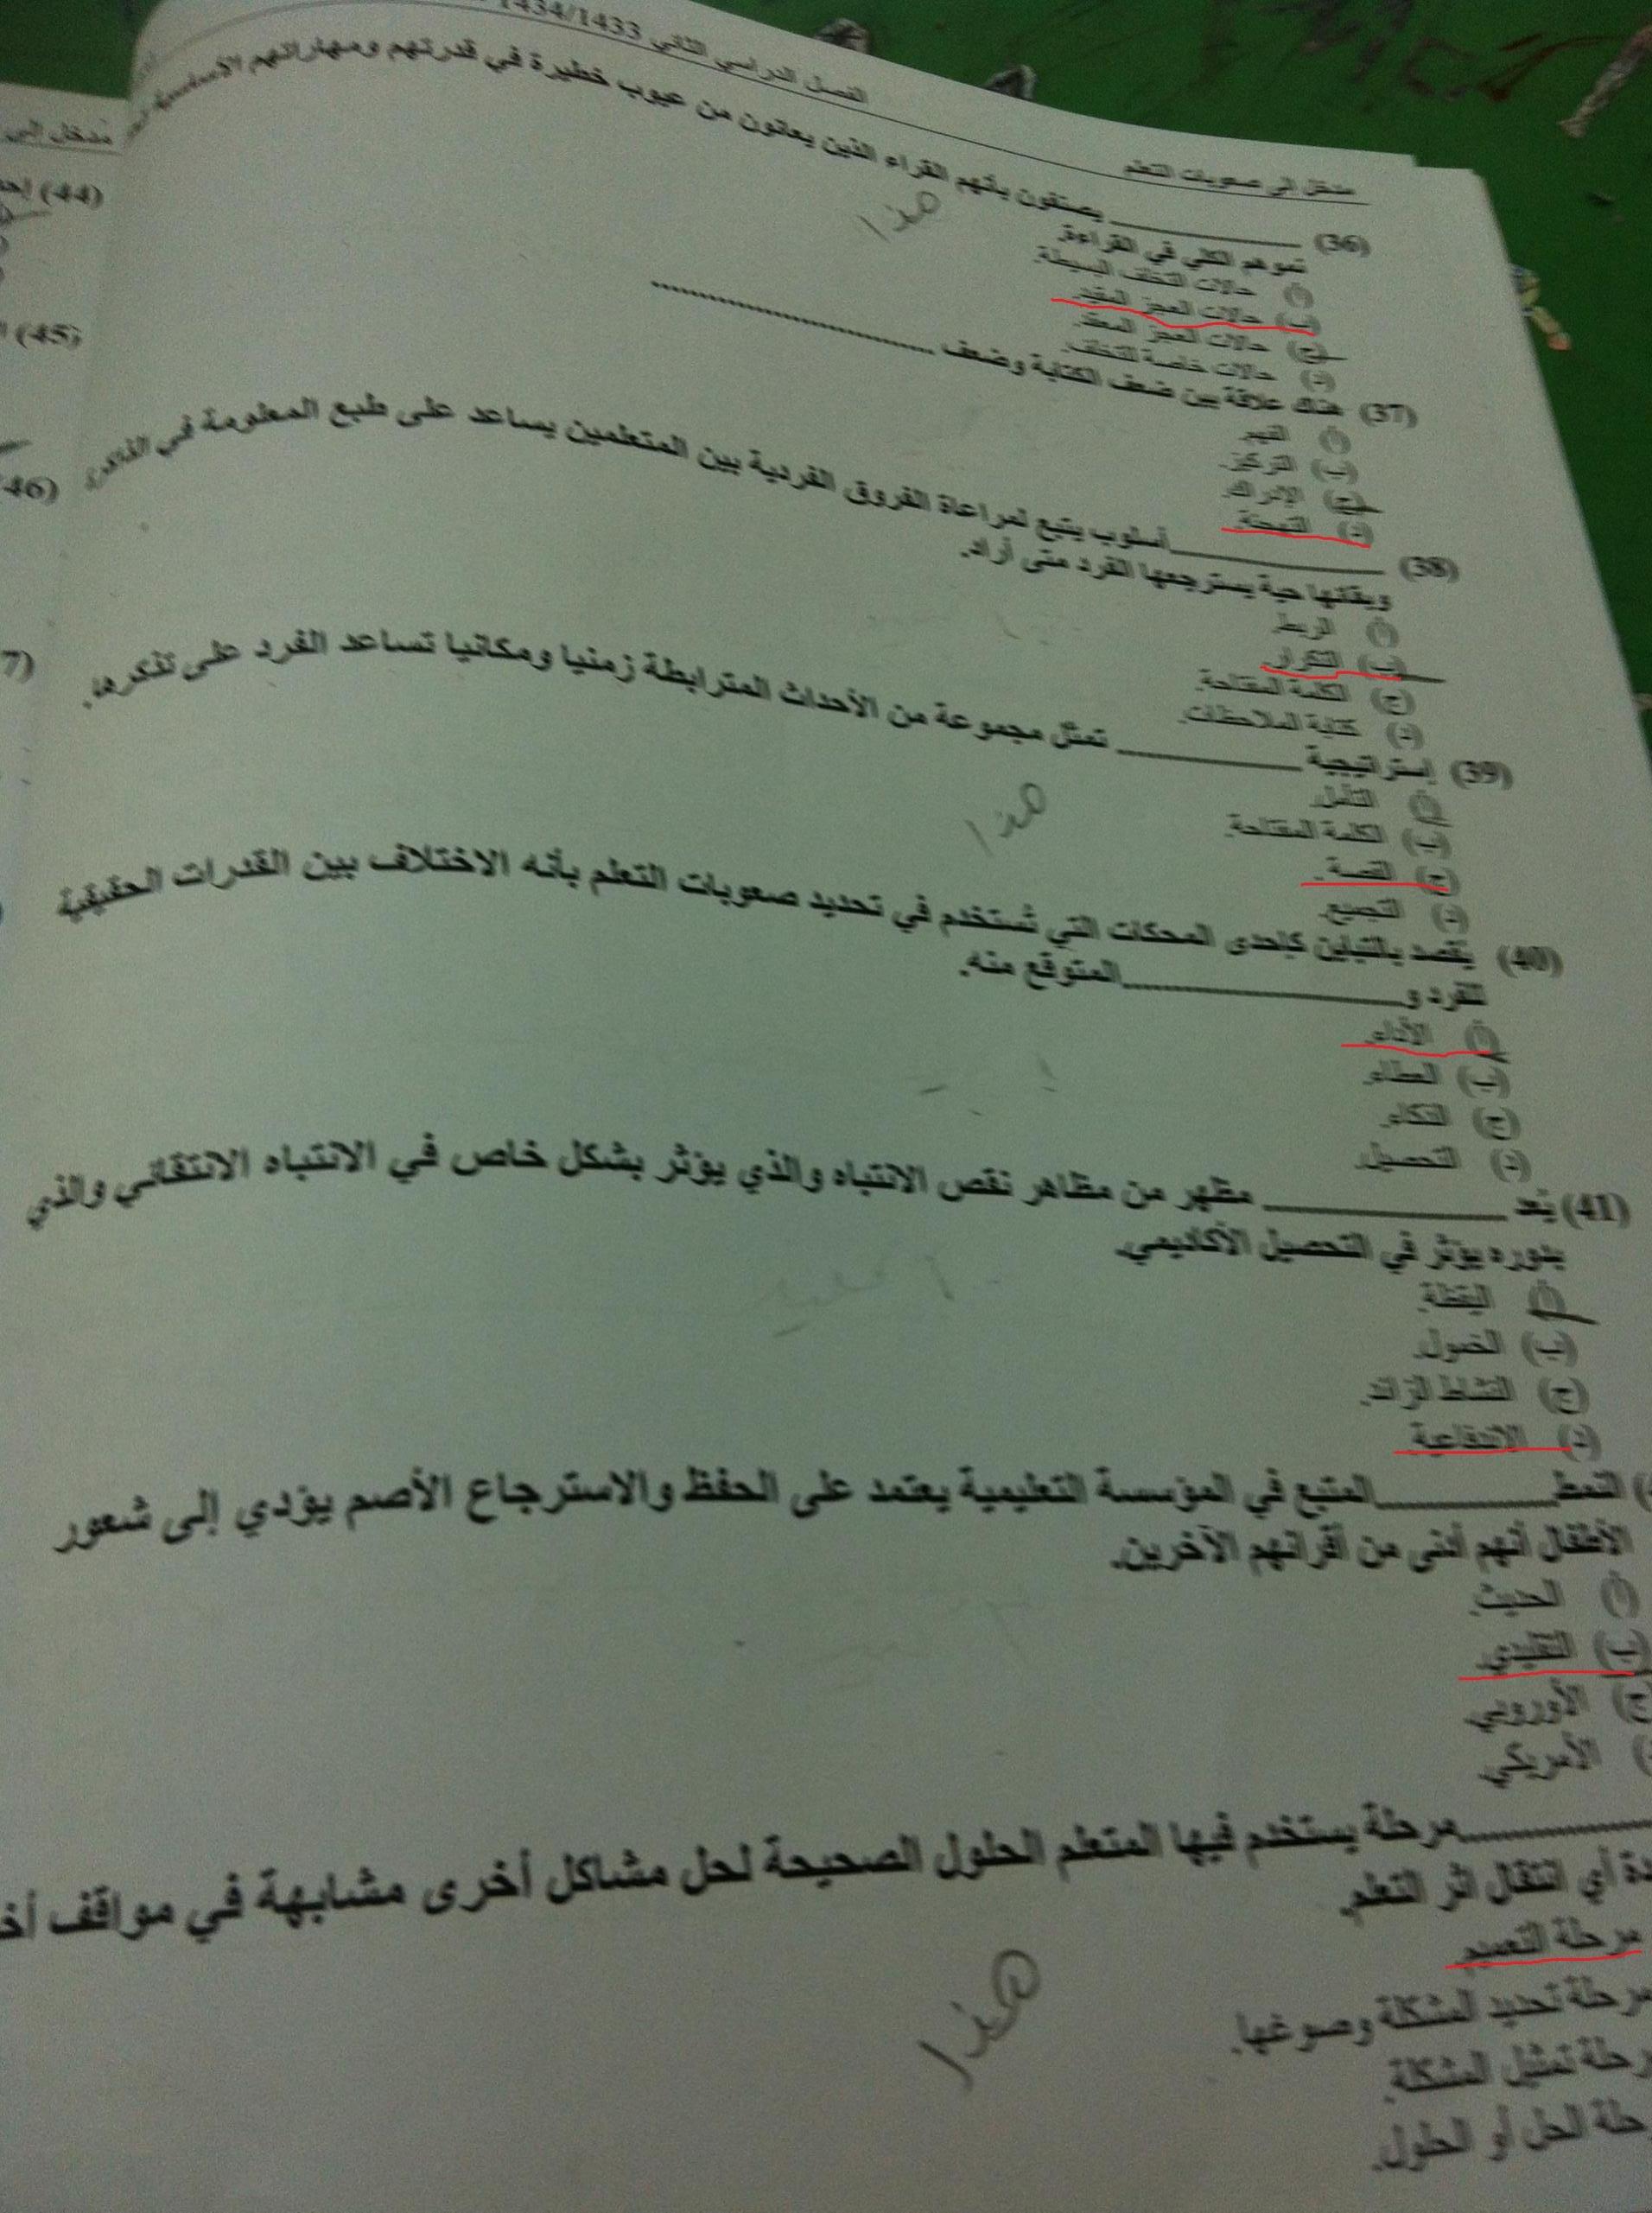 مدخل إلى صعوبات التعلم الفصل الدراسي الثاني 1434/1433
(36) ____________ يصنفون بأنهم القراء الذين يعانون من عيوب خطيرة في قدرتهم ومهاراتهم الأساسية
نموهم الكلي في القراءة.
هذا
(أ) حالات التخلف البسيطة.
(ب) حالات العجز المقيد.
(ج) حالات العجز المعقد.
(د) حالات خاصة للتخلف.
(37) هناك علاقة بين ضعف الكتابة وضعف ____________
(أ) الفهم.
(ب) التركيز.
(ج) الإدراك.
(د) التهجئة.
(38) ____________ أسلوب يتبع لمراعاة الفروق الفردية بين المتعلمين يساعد على طبع المعلومة في الذاكرة
وبقائها حية يسترجعها الفرد متى أراد.
(أ) الربط.
(ب) التكرار.
(ج) الكلمة المفتاحة.
(د) كتابة الملاحظات.
(39) إستراتيجية ____________ تمثل مجموعة من الأحداث المترابطة زمنيا ومكانيا تساعد الفرد على تذكرها.
هذا
(أ) التأمل.
(ب) الكلمة المفتاحة.
(ج) القصة.
(د) التجميع.
(40) يقصد بالتباين كإحدى المحكات التي تُستخدم في تحديد صعوبات التعلم بأنه الاختلاف بين القدرات الحقيقية
للفرد و____________المتوقع منه.
(أ) الأداء.
(ب) العطاء.
(ج) الذكاء.
(د) التحصيل.
(41) يُعد ____________ مظهر من مظاهر نقص الانتباه والذي يؤثر بشكل خاص في الانتباه الانتقائي والذي
بدوره يؤثر في التحصيل الأكاديمي.
(أ) اليقظة.
(ب) الخمول.
(ج) النشاط الزائد.
(د) الاندفاعية
النمط____________المتبع في المؤسسة التعليمية يعتمد على الحفظ والاسترجاع الأصم يؤدي إلى شعور
الأطفال أنهم أدنى من أقرانهم الآخرين.
(أ) الحديث.
(ب) التقليدي.
(ج) الأوروبي.
الأمريكي.
____________مرحلة يستخدم فيها المتعلم الحلول الصحيحة لحل مشاكل أخرى مشابهة في مواقف
أي انتقال اثر التعلم.
مرحلة التعميم.
مرحلة تحديد المشكلة وصوغها.
هذا
تمثيل المشكلة.
الحل أو الحلول.
مدخل إلى
(44)
(45)
46)
7)